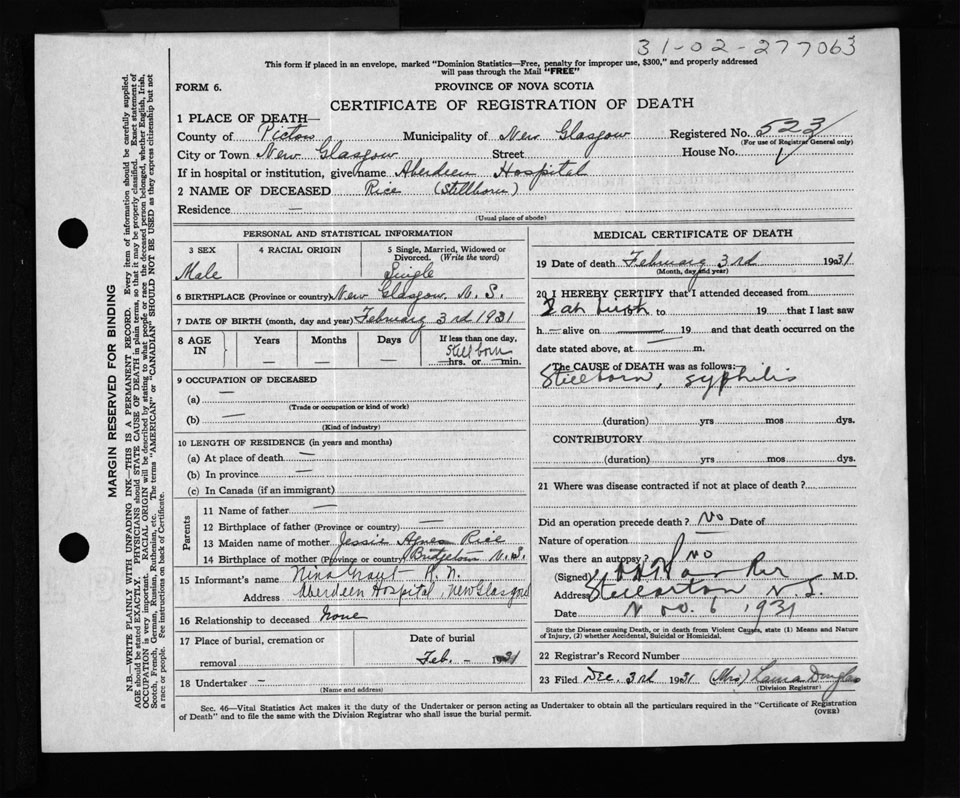 31-02-277063
This form if placed in an envelope, marked "Dominion Statistics—Free, penalty for improper use, $300," and properly addressed
will pass through the Mail "FREE"
FORM 6.
PROVINCE OF NOVA SCOTIA
CERTIFICATE OF REGISTRATION OF DEATH
1 PLACE OF DEATH—
County of Pictou Municipality of New Glasgow Registered No. 523
(For use of Registrar General only)
City or Town New Glasgow Street House No.
If in hospital or institution, give name Aberdeen Hospital
2 NAME OF DECEASED Rice (Stillborn)
Residence —
(Usual place of abode)
PERSONAL AND STATISTICAL INFORMATION
3 SEX 4 RACIAL ORIGIN 5 Single, Married, Widowed or Divorced. (Write the word)
Male Single
6 BIRTHPLACE (Province or country) New Glasgow, N. S.
7 DATE OF BIRTH (month, day and year) February 3rd 1931
8 AGE IN Years Months Days If less than one day,
— — — Stillborn
hrs. or min.
9 OCCUPATION OF DECEASED
(a) —
(Trade or occupation or kind of work)
(b) —
(Kind of industry)
10 LENGTH OF RESIDENCE (in years and months)
(a) At place of death —
(b) In province —
(c) In Canada (if an immigrant)
Parents
11 Name of father —
12 Birthplace of father (Province or country) —
13 Maiden name of mother Jessie Agnes Rice
14 Birthplace of mother (Province or country) Bridgetown N.S.
15 Informant's name Nina Grant R. N.
Address Aberdeen Hospital, New Glasgow
16 Relationship to deceased None
17 Place of burial, cremation or removal Date of burial
Feb. — 1931
18 Undertaker —
(Name and address)
MEDICAL CERTIFICATE OF DEATH
19 Date of death February 3rd 1931
(Month, day and year)
20 I HEREBY CERTIFY that I attended deceased from
at birth to 19 that I last saw
h — alive on — 19 and that death occurred on the
date stated above, at — m.
The CAUSE OF DEATH was as follows:
Stillborn, syphilis
(duration) yrs mos dys.
CONTRIBUTORY
(duration) yrs mos dys.
21 Where was disease contracted if not at place of death?
Did an operation precede death? No Date of
Nature of operation
Was there an autopsy? No
(Signed) M.D.
Address Stellarton N.S.
Date Nov. 6 1931
State the Disease causing Death, or in death from Violent Causes, state (1) Means and Nature
of Injury, (2) whether Accidental, Suicidal or Homicidal.
22 Registrar's Record Number
23 Filed Dec. 3rd 1931 (Mrs) Laura Douglas
(Division Registrar)
Sec. 46—Vital Statistics Act makes it the duty of the Undertaker or person acting as Undertaker to obtain all the particulars required in the "Certificate of Registration
of Death" and to file the same with the Division Registrar who shall issue the burial permit.
(OVER)
MARGIN RESERVED FOR BINDING
N.B.—WRITE PLAINLY WITH UNFADING INK—THIS IS A PERMANENT RECORD. Every item of information should be carefully supplied.
AGE should be stated EXACTLY. PHYSICIANS should STATE CAUSE OF DEATH in plain terms, so that it may be properly classified. Exact statement of
OCCUPATION is very important. RACIAL ORIGIN will be described by stating to what people or race the deceased person belonged, whether English, Irish,
Scotch, French, German, Russian, Ruthenian, etc. The terms "AMERICAN" or "CANADIAN" SHOULD NOT BE USED as they express citizenship but not
a race or people. Fee instructions on back of Certificate.